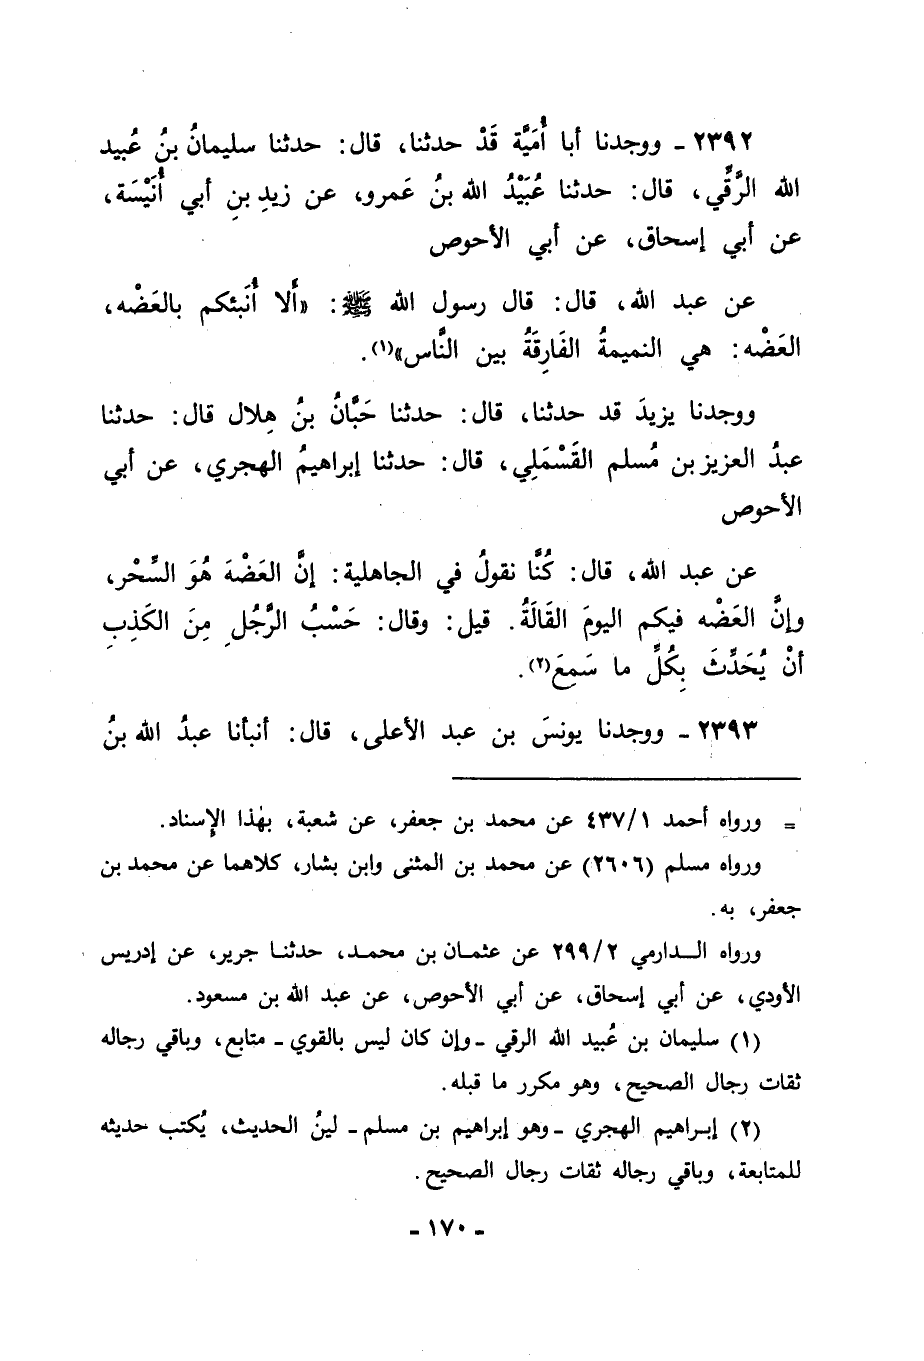 ٢٣٩٢ ـ ووجدنا أبا أُمَيَّة قَدْ حدثنا، قال: حدثنا سليمانُ بنُ عُبيد
الله الرَّقِّي، قال: حدثنا عُبَيْدُ الله بنُ عَمرو، عن زيدِ بنِ أبي أُنَيْسَة،
عن أبي إسحاق، عن أبي الأحوص
عن عبد الله، قال: قال رسول الله ﷺ: «أَلا أُنَبئكم بالعَضْه،
العَضْه: هي النميمةُ الفَارِقَةُ بين النَّاس»(١).
ووجدنا يزيدَ قد حدثنا، قال: حدثنا حَبَّانُ بنُ هِلال قال: حدثنا
عبدُ العزيز بن مُسلم القَسْمَلِي، قال: حدثنا إبراهيمُ الهجري، عن أبي
الأحوص
عن عبد الله، قال: كُنَّا نقولُ في الجاهلية: إنَّ العَضْهَ هُوَ السِّحْر،
وإنَّ العَضْه فيكم اليومَ القَالَةُ. قيل: وقال: حَسْبُ الرَّجُلِ مِنَ الكَذِبِ
أنْ يُحَدِّثَ بِكُلِّ ما سَمِعَ(٢).
٢٣٩٣ ـ ووجدنا يونسَ بن عبد الأعلى، قال: أنبأنا عبدُ الله بنُ
= ورواه أحمد ٤٣٧/١ عن محمد بن جعفر، عن شعبة، بهٰذا الإسناد.
ورواه مسلم (٢٦٠٦) عن محمد بن المثنى وابن بشار، كلاهما عن محمد بن
جعفر، به.
ورواه الدارمي ٢٩٩/٢ عن عثمان بن محمد، حدثنا جرير، عن إدريس
الأودي، عن أبي إسحاق، عن أبي الأحوص، عن عبد الله بن مسعود.
(١) سليمان بن عُبيد الله الرقي ـ وإن كان ليس بالقوي ـ متابع، وباقي رجاله
ثقات رجال الصحيح، وهو مكرر ما قبله.
(٢) إبراهيم الهجري ـ وهو إبراهيم بن مسلم ـ لينُ الحديث، يُكتب حديثه
للمتابعة، وباقي رجاله ثقات رجال الصحيح.
ـ ١٧٠ ـ